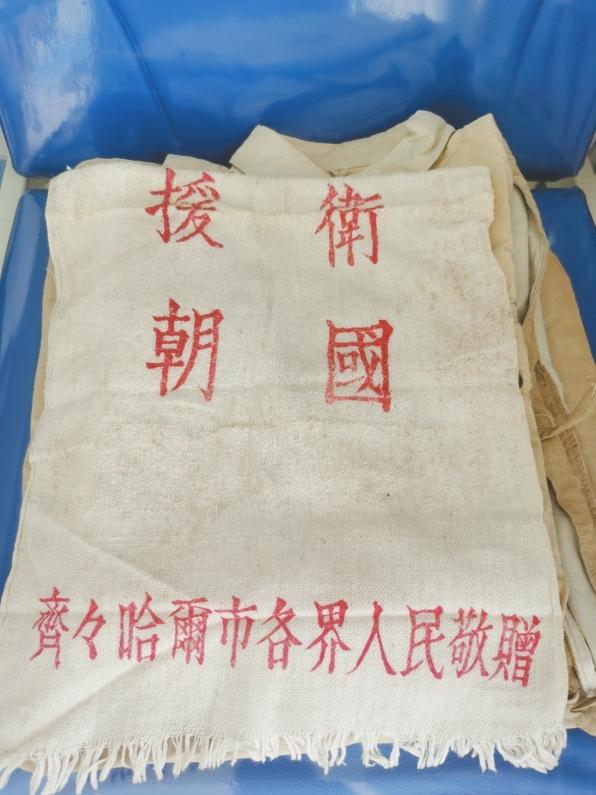 衛國
援朝
齊々哈爾市各界人民敬贈